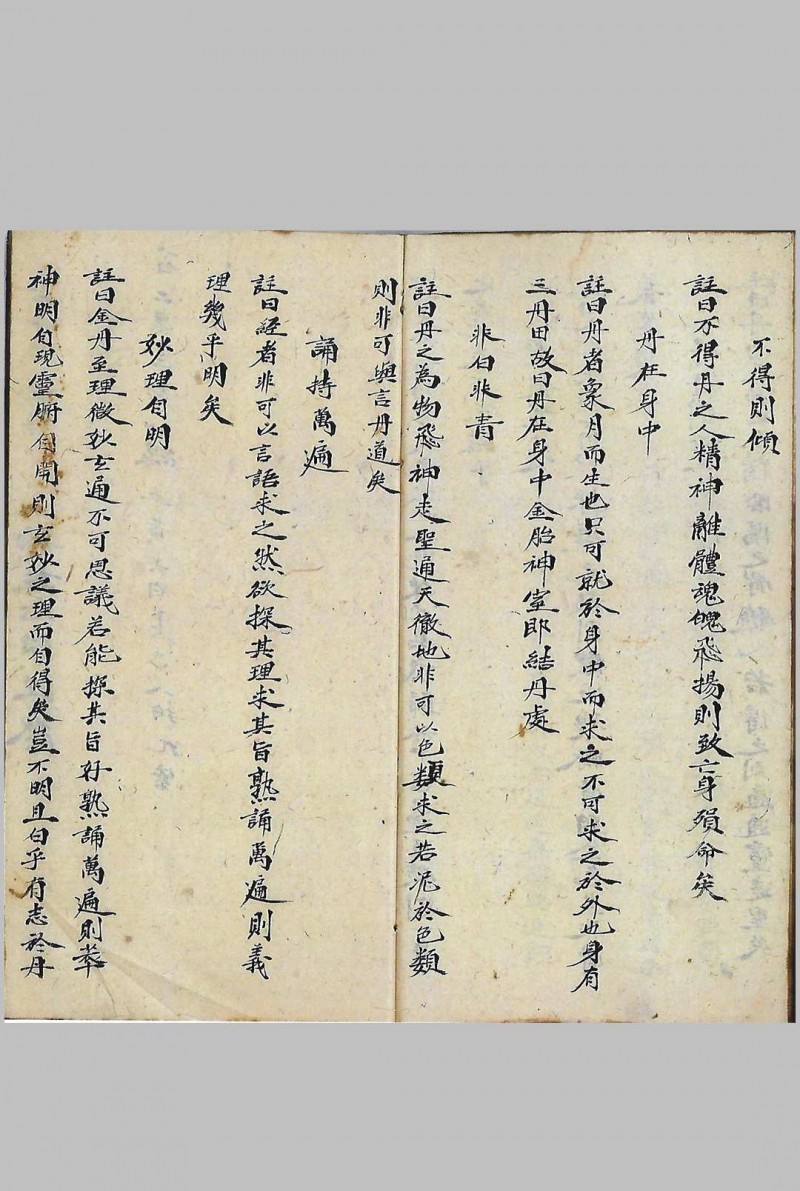 不得則傾
註曰不得丹之人精神離體魂魄飛揚則致亡身殞命矣
丹在身中
註曰丹者象月而生也只可就於身中而求之不可求之於外也身有
三丹田故曰丹在身中金胎神室即結丹處
非白非青
註曰丹之為物飛神走聖通天徹地非可以色類求之若泥於色類
則非可與言丹道矣
誦持萬遍
註曰經者非可以言語求之然欲探其理求其旨熟誦萬遍則義
理幾乎明矣
妙理自明
註曰金丹至理微妙玄通不可思議若能探其旨好熟誦萬遍則
神明自現靈腑自開則玄妙之理而自得矣豈不明且白乎有志於丹